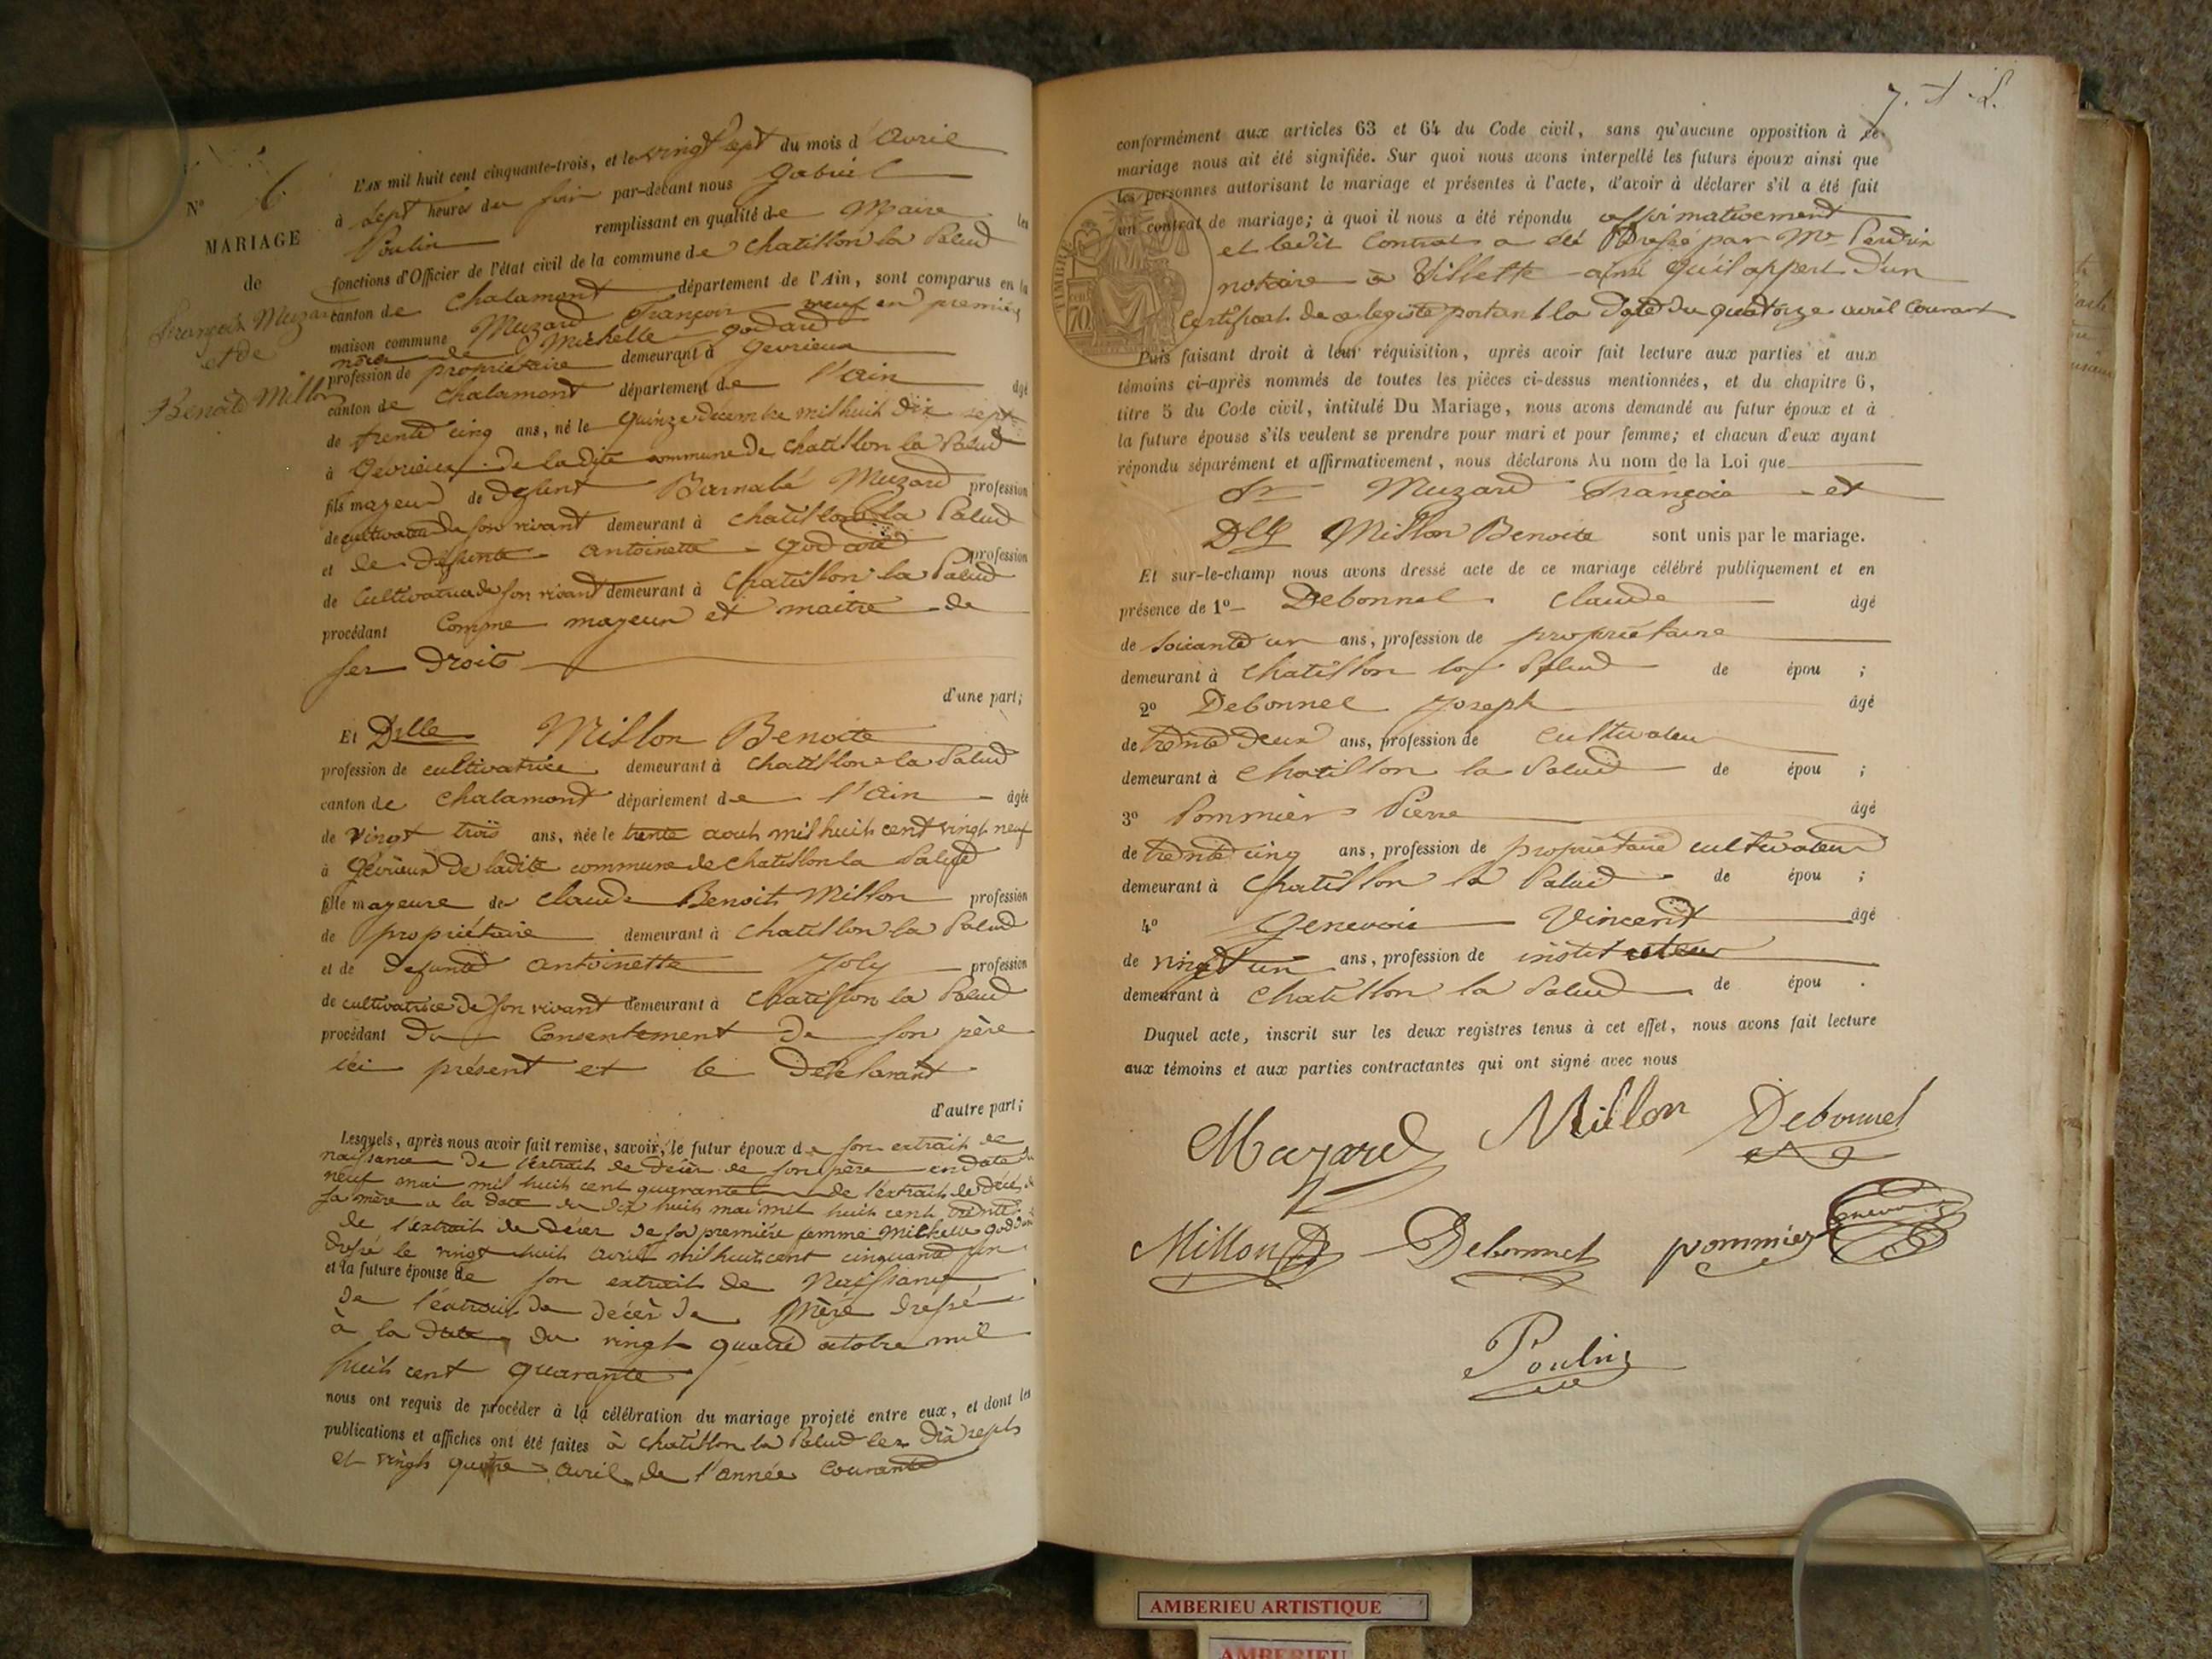 N° 6
MARIAGE
de
François Muzard
et de
Benoite Millon
L'AN mil huit cent cinquante-trois, et le vingt sept du mois d'Avril
à sept heures du soir par-devant nous Gabriel
Poulin remplissant en qualité de Maire les
fonctions d'Officier de l'état civil de la commune de Chatillon la Palud
canton de Chalamont département de l'Ain, sont comparus en la
maison commune Muzard François veuf en première
nôce de Michelle Godard
profession de propriétaire demeurant à Gevrieux
canton de Chalamont département de l'Ain âgé
de trente cinq ans, né le quinze Décembre mil huit dix sept
à Gévrieux de ladite commune de Chatillon la Palud
fils majeur de defunt Barnabé Muzard profession
de cultivateur de son vivant demeurant à Chatillon la Palud
et de Défunte Antoinette Godard profession
de Cultivatrice de son vivant demeurant à Chatillon la Palud
procédant Comme majeur et maitre de
ses Droits
d'une part;
Et Dlle Millon Benoite
profession de cultivatrice demeurant à Chatillon la Palud
canton de Chalamont département de l'Ain âgée
de vingt trois ans, née le trente aout mil huit cent vingt neuf
à Gévrieux de ladite commune de Chatillon la Palud
fille majeure de Claude Benoit Millon profession
de propriétaire demeurant à Chatillon la Palud
et de defunte Antoinette Joly profession
de cultivatrice de son vivant demeurant à Chatillon la Palud
procédant Du Consentement De son père
ici présent et le Déclarant
d'autre part;
Lesquels, après nous avoir fait remise, savoir, le futur époux de son extrait de
naissance De l'extrait de Décès de son père en date du
neuf mai mil huit cent quarante de l'extrait de décès de
sa mère a la date du dix huit mai mil huit cent trente
de l'extrait de Décès de sa première femme Michelle Goddard
dressé le vingt huit avril mil huit cent cinquante un
et la future épouse de son extrait de Naissance
de l'extrait de décès de Mère dressé
à la date du vingt quatre octobre mil
huit cent quarante
nous ont requis de procéder à la célébration du mariage projeté entre eux, et dont les
publications et affiches ont été faites à Chatillon la Palud les Dix sept
et vingt quatre avril de l'année courante
7.
conformément aux articles 63 et 64 du Code civil, sans qu'aucune opposition à ce
mariage nous ait été signifiée. Sur quoi nous avons interpellé les futurs époux ainsi que
les personnes autorisant le mariage et présentes à l'acte, d'avoir à déclarer s'il a été fait
un contrat de mariage; à quoi il nous a été répondu affirmativement
et ledit Contrat a été Dressé par Me Perdrix
notaire à Villette ainsi qu'il appert d'un
Certificat de ce legiste portant la Date du quatorze avril Courant
TIMBRE
70
Puis faisant droit à leur réquisition, après avoir fait lecture aux parties et aux
témoins ci-après nommés de toutes les pièces ci-dessus mentionnées, et du chapitre 6,
titre 5 du Code civil, intitulé Du Mariage, nous avons demandé au futur époux et à
la future épouse s'ils veulent se prendre pour mari et pour femme; et chacun d'eux ayant
répondu séparément et affirmativement, nous déclarons Au nom de la Loi que
Sr Muzard François et
Dlle Millon Benoite sont unis par le mariage.
Et sur-le-champ nous avons dressé acte de ce mariage célébré publiquement et en
présence de 1° Debonnel Claude âgé
de soixante un ans, profession de propriétaire
demeurant à Chatillon la Palud de épou ;
2° Debonnel Joseph âgé
de trente Deux ans, profession de Cultivateur
demeurant à Chatillon la Palud de épou ;
3° Pommier Pierre âgé
de trente cinq ans, profession de propriétaire cultivateur
demeurant à Chatillon la Palud de épou ;
4° Genevois Vincent âgé
de vingt un ans, profession de instituteur
demeurant à Chatillon la Palud de épou .
Duquel acte, inscrit sur les deux registres tenus à cet effet, nous avons fait lecture
aux témoins et aux parties contractantes qui ont signé avec nous
Muzard Millon Debonnel
Millon Debonnel pommier Genevois
Poulin
AMBERIEU ARTISTIQUE
AMBERIEU